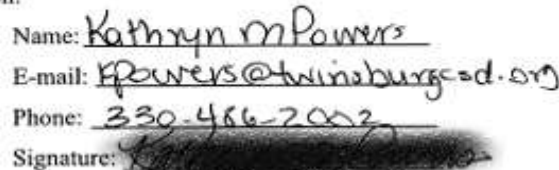 Name: Kathryn M Powers
E-mail: KPowers@twinsburgcsd.org
Phone: 330-486-2002
Signature: